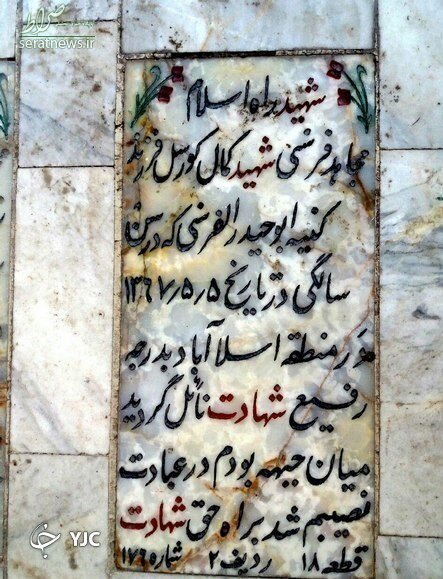 صراط
seratnews.ir
شهید براه اسلام
مجاهد فرنسی شهید کمال کورسل فرزند
کنیه ابوحیدر الفرنسی که در سن
سالگی در تاریخ ۱۳۶۷/۵/۵
در منطقه اسلام آباد بدرجه
رفیع شهادت نائل گردید
میان جبهه بودم در عبادت
نصیبم شد براه حق شهادت
قطعه ۱۸ ردیف ۲ شماره ۱۷۶
YJC